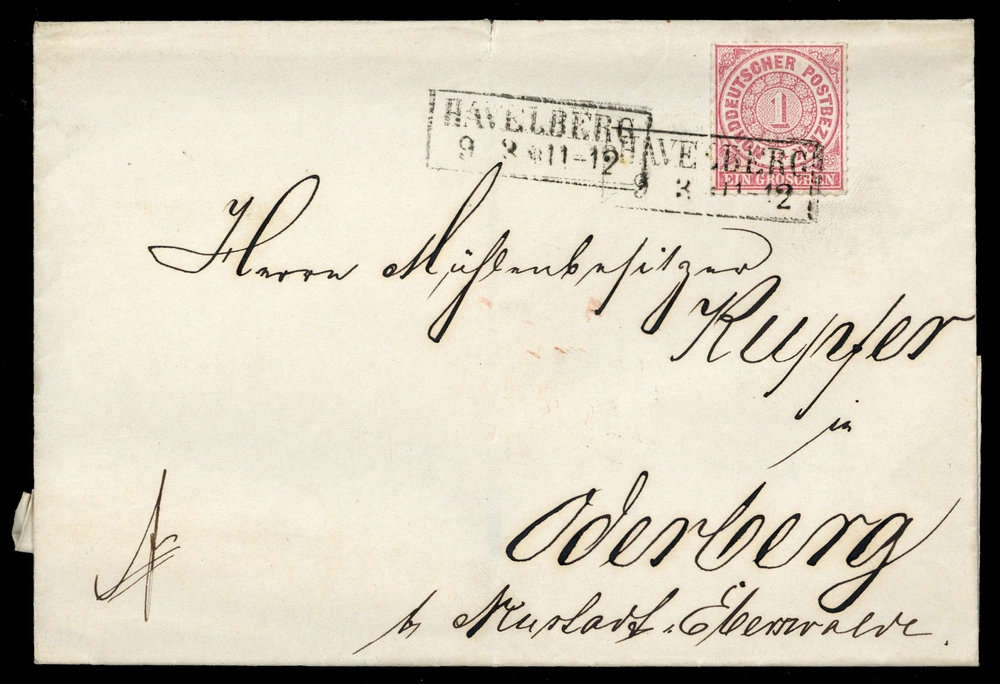 HAVELBERG
9 3 11-12
HAVELBERG
9 3 11-12
DDEUTSCHER POSTBEZ
1
EIN GROSCHEN
Herrn Mühlenbesitzer
Kupfer
in
Oderberg
b. Neustadt-Eberswalde.